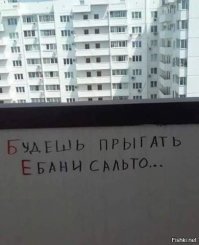 Будешь прыгать
Ебани сальто...
Fishki.net